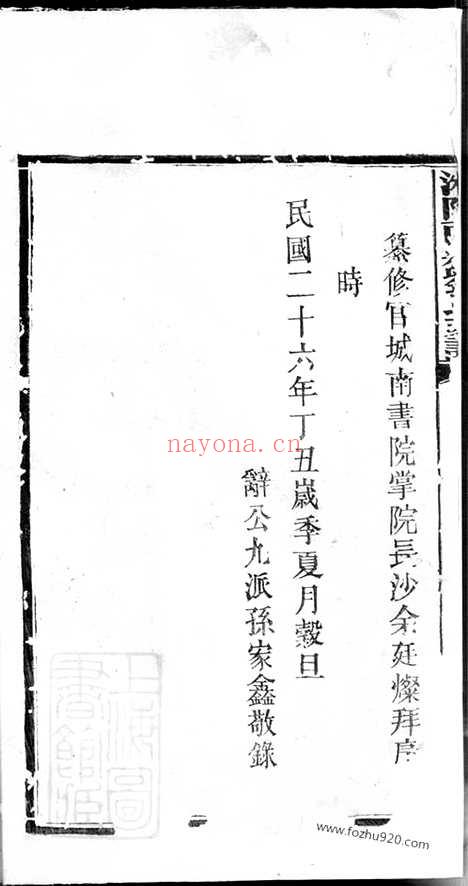 纂修官城南書院掌院長沙余廷燦拜序
時
民國二十六年丁丑歲季夏月穀旦
辭公九派孫家鑫敬錄
nayona.cn
www.fozhu920.com